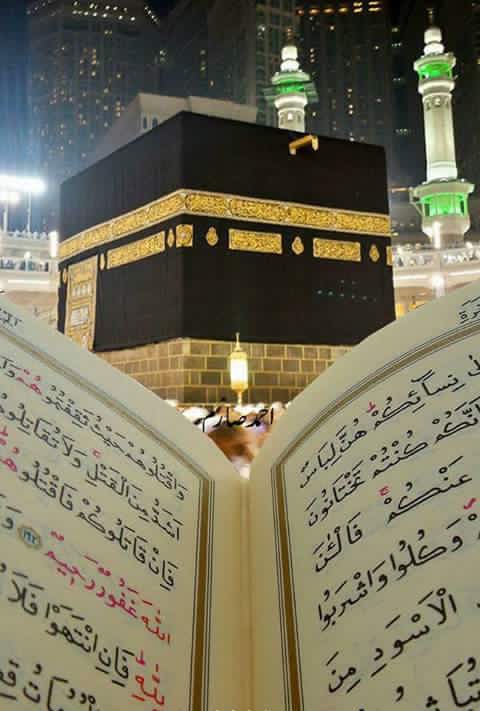 نِسَآئِكُمْ هُنَّ لِبَاسٌ
أَنَّكُمْ كُنْتُمْ تَخْتَانُونَ
عَنْكُمْ فَالْـٰٔنَ
وَكُلُوا وَاشْرَبُوا
الْاَسْوَدِ مِنَ
وَاقْتُلُوهُمْ حَيْثُ ثَقِفْتُمُوهُمْ
اَشَدُّ مِنَ الْقَتْلِ وَلَا تُقَاتِلُو
فَاِنْ قَاتَلُوكُمْ فَاقْتُلُوهُمْ
اللّٰهَ غَفُورٌ رَحِيمٌ ١٩٢
لِلّٰهِ فَاِنِ انْتَهَوْا فَلَا
احمد صارم